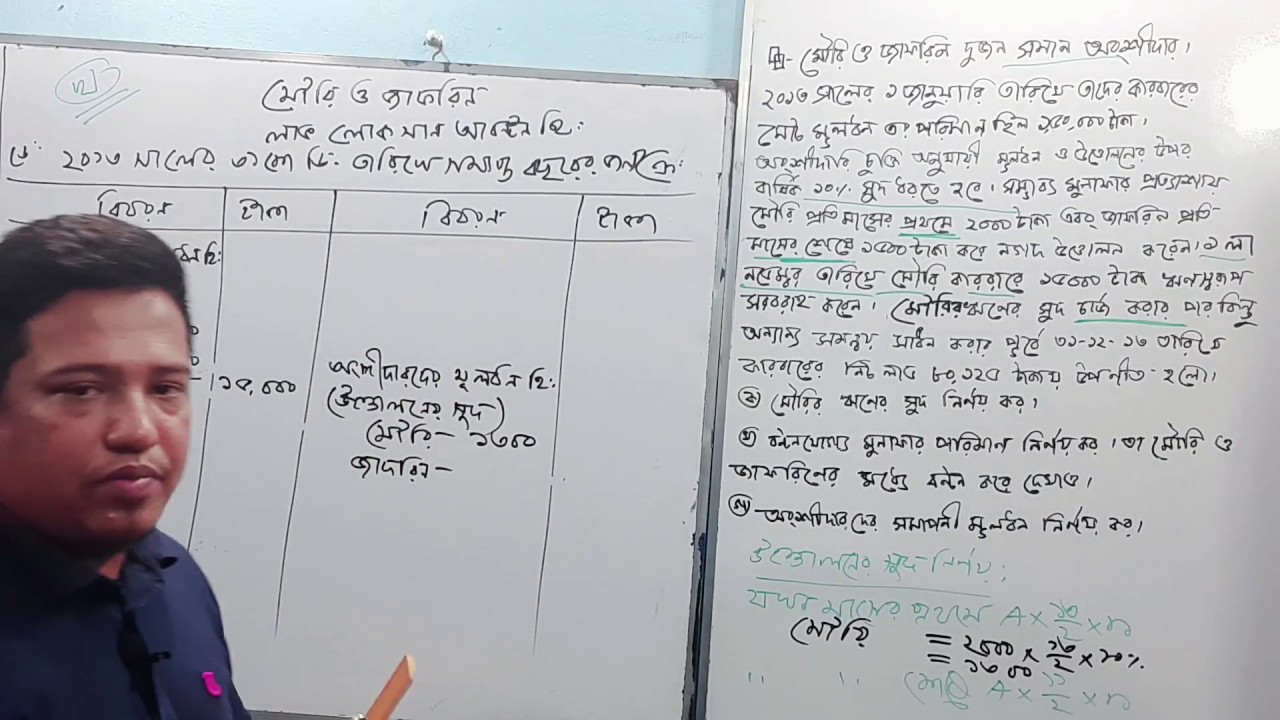 খ
মৌরি ও জাফরিন
লাভ লোকসান আবন্টন হি:
ডে: ২০১৩ সালের ৩১শে ডি: তারিখে সমাপ্ত বছরের জন্য ক্রে:
বিবরন
টাকা
বিবরন
টাকা
হি:
১৫,০০০
অংশীদারদের মূলধন হি:
(উত্তোলনের সুদ)
মৌরি- ১৩০০
জাফরিন-
মৌরি ও জাফরিন দুজন সমান অংশীদার।
২০১৩ সালের ১ জানুয়ারি তারিখে তাদের কারবারের
মোট মূলধন এর পরিমান ছিল ১৫০,০০০ টাকা।
অংশীদারি চুক্তি অনুযায়ী মূলধন ও উত্তোলনের উপর
বার্ষিক ১০% সুদ ধরতে হবে। সম্ভাব্য মুনাফার প্রত্যাশায়
মৌরি প্রতি মাসের প্রথমে ২০০০ টাকা এবং জাফরিন প্রতি
মাসের শেষে ১৫০০ টাকা করে নগদ উত্তোলন করেন। ১ লা
নভেম্বর তারিখে মৌরি কারবারে ১৫০০০ টাকা ঋনস্বরূপ
সরবরাহ করেন। মৌরির ঋনের সুদ চার্জ করার পর কিন্তু
অন্যান্য সমন্বয় সাধন করার পূর্বে ৩১-১২-১৩ তারিখে
কারবারের নিট লাভ ৮০,১২৫ টাকায় উপনীত হলো।
ক) মৌরির ঋনের সুদ নির্নয় কর।
খ) বন্টনযোগ্য মুনাফার পরিমান নির্নয় কর। তা মৌরি ও
জাফরিনের মধ্যে বন্টন করে দেখাও।
গ) অংশীদারদের সমাপনী মূলধন নির্নয় কর।
উত্তোলনের সুদ নির্নয়:
যখন মাসের প্রথমে A × ১৩/২ × n
মৌরি = ২০০০ × ১৩/২ × ১০%
= ১৩০০
" " শেষে A × ১১/২ × n